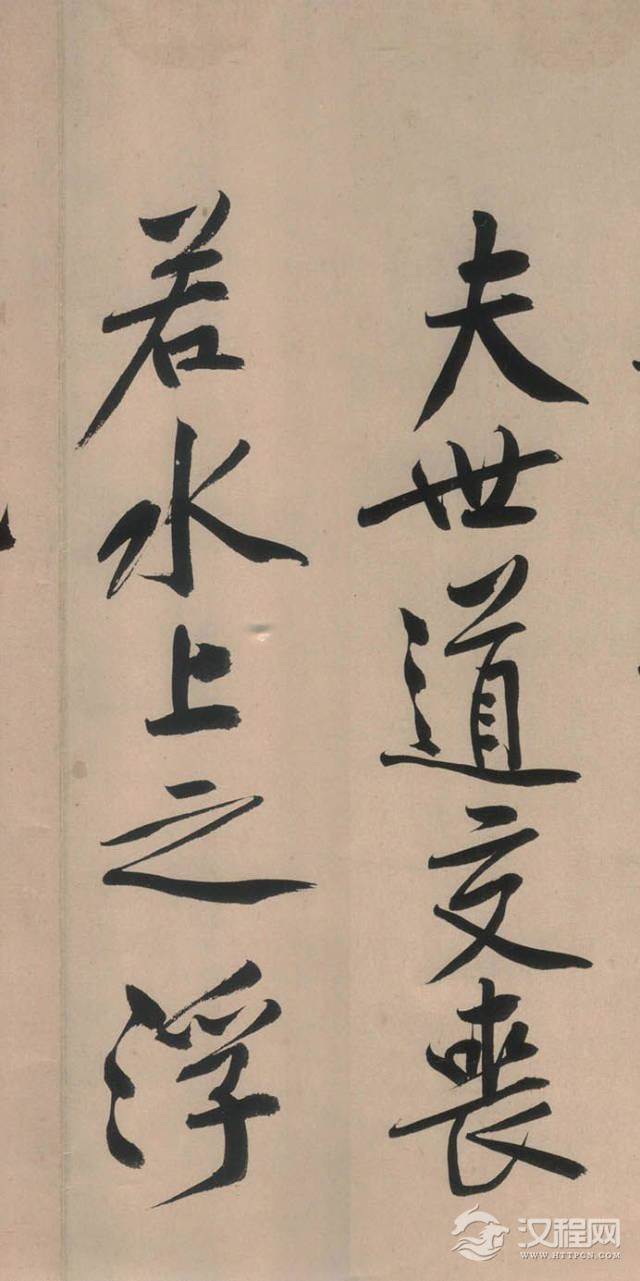 夫世道交喪
若水上之浮
汉程网
WWW.HTTPCN.COM